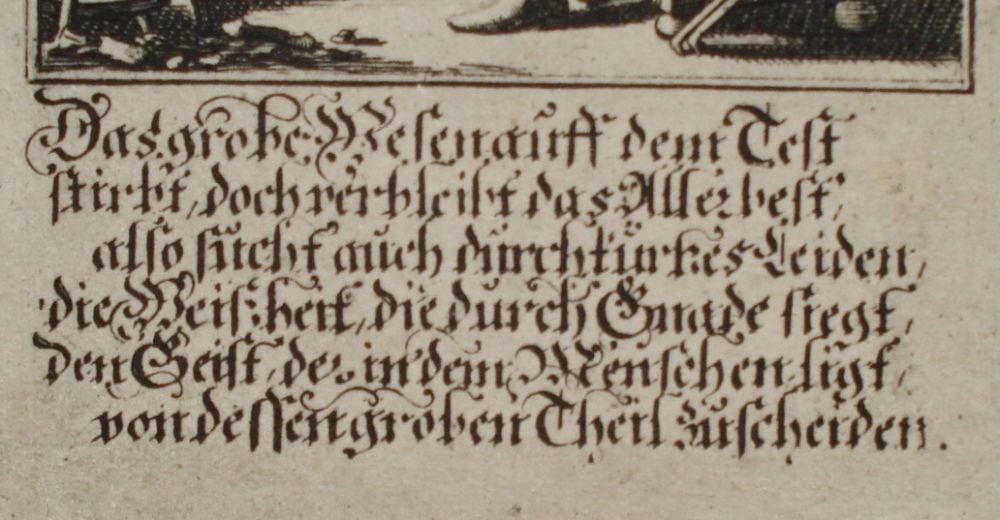 Das grobe Wesen auff dem Test
stirbt, doch verbleibt das Allerbest,
also sucht auch durch kurtzes Leiden,
die Weißheit, die durch Gnade siegt,
den Geist, der in dem Menschen ligt,
von dessen groben Theil zuscheiden.